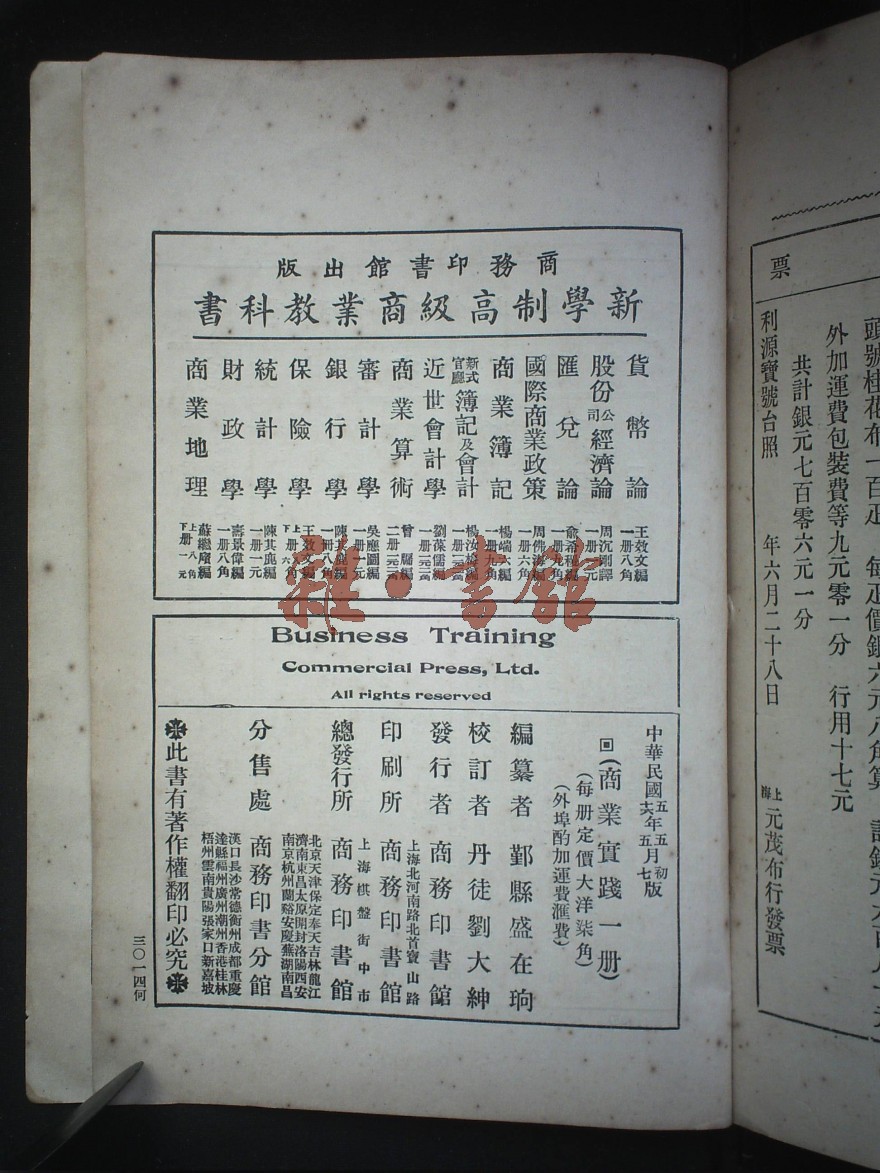 商務印書館出版
新學制高級商業教科書
貨幣論 王效文編 一冊八角
股份公司經濟論 周沈剛譯 一冊一元
匯兌論 俞希稷編 一冊九角
國際商業政策 周佛海編 一冊六角
商業簿記 楊端六編 一冊九角
新式官廳簿記及會計 楊汝梅編
近世會計學 劉葆儒編
商業算術 曾牖編
審計學 吳應圖編 一冊一元
銀行學 陳其鹿編 一冊八角
保險學 王效文編
統計學 陳其鹿編 一冊一元
財政學 壽景偉編 一冊八角
商業地理 蘇繼廎編 上冊八角 下冊一元
Business Training
Commercial Press, Ltd.
All rights reserved
中華民國五年五月初版
十六年五月七版
(商業實踐一册)
(每册定價大洋柒角)
(外埠酌加運費匯費)
編纂者 鄞縣盛在珦
校訂者 丹徒劉大紳
發行者 商務印書館
上海北河南路北首寶山路
印刷所 商務印書館
上海棋盤街中市
總發行所 商務印書館
北京天津保定奉天吉林龍江
濟南東昌太原開封洛陽西安
南京杭州蘭谿安慶蕪湖南昌
分售處 商務印書分館
漢口長沙常德衡州成都重慶
達縣福州廣州潮州香港桂林
梧州雲南貴陽張家口新嘉坡
此書有著作權翻印必究
三〇一四何
雜·書館
頭號桂花布一百疋 每疋價銀六元八角算
外加運費包裝費等九元零一分 行用十七元
共計銀元七百零六元一分
利源寶號台照 年六月二十八日 上海元茂布行發票
票